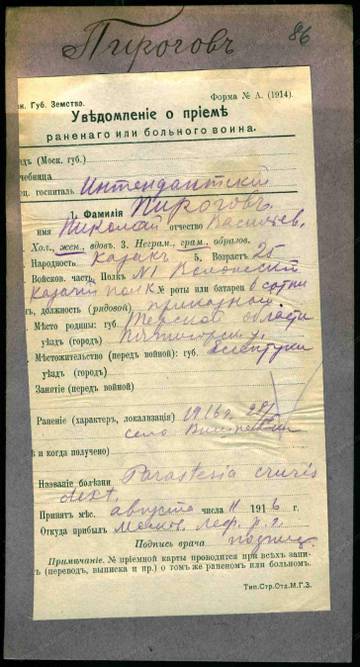 Пироговъ
86
ск. Губ. Земство.
Форма № А. (1914).
Увѣдомленіе о пріемѣ
раненаго или больного воина.
здъ (Моск. губ.)
чебница
ец. госпиталь Интендантскій
1. Фамилія Пироговъ
имя Николай отчество Васильев.
2. Хол., жен., вдов. 3. Неграм., грам., образов.
Народность Казакъ 5. Возрастъ 25
Войсков. часть. Полкъ №1
Казачій полк № роты или батареи 6 сотни
ъ, должность (рядовой) приказный
Мѣсто родины: губ. Терской области
уѣздъ (городъ)
Мѣстожительство (передъ войной): губ. Есентуки
уѣздъ (городъ)
Занятіе (передъ войной)
Раненіе (характеръ, локализація) 1916г.
село
ѣ и когда получено)
Названіе болѣзни Parastesia cruris
dext.
Принятъ мѣс. августа числа 11 1916 г.
Откуда прибылъ
Подпись врача
Примѣчаніе. № пріемной карты проводится при всѣхъ запи-
ъ (переводъ, выписка и пр.) о томъ же раненомъ или больномъ.
Тип.Стр.Отд.М.Г.З.